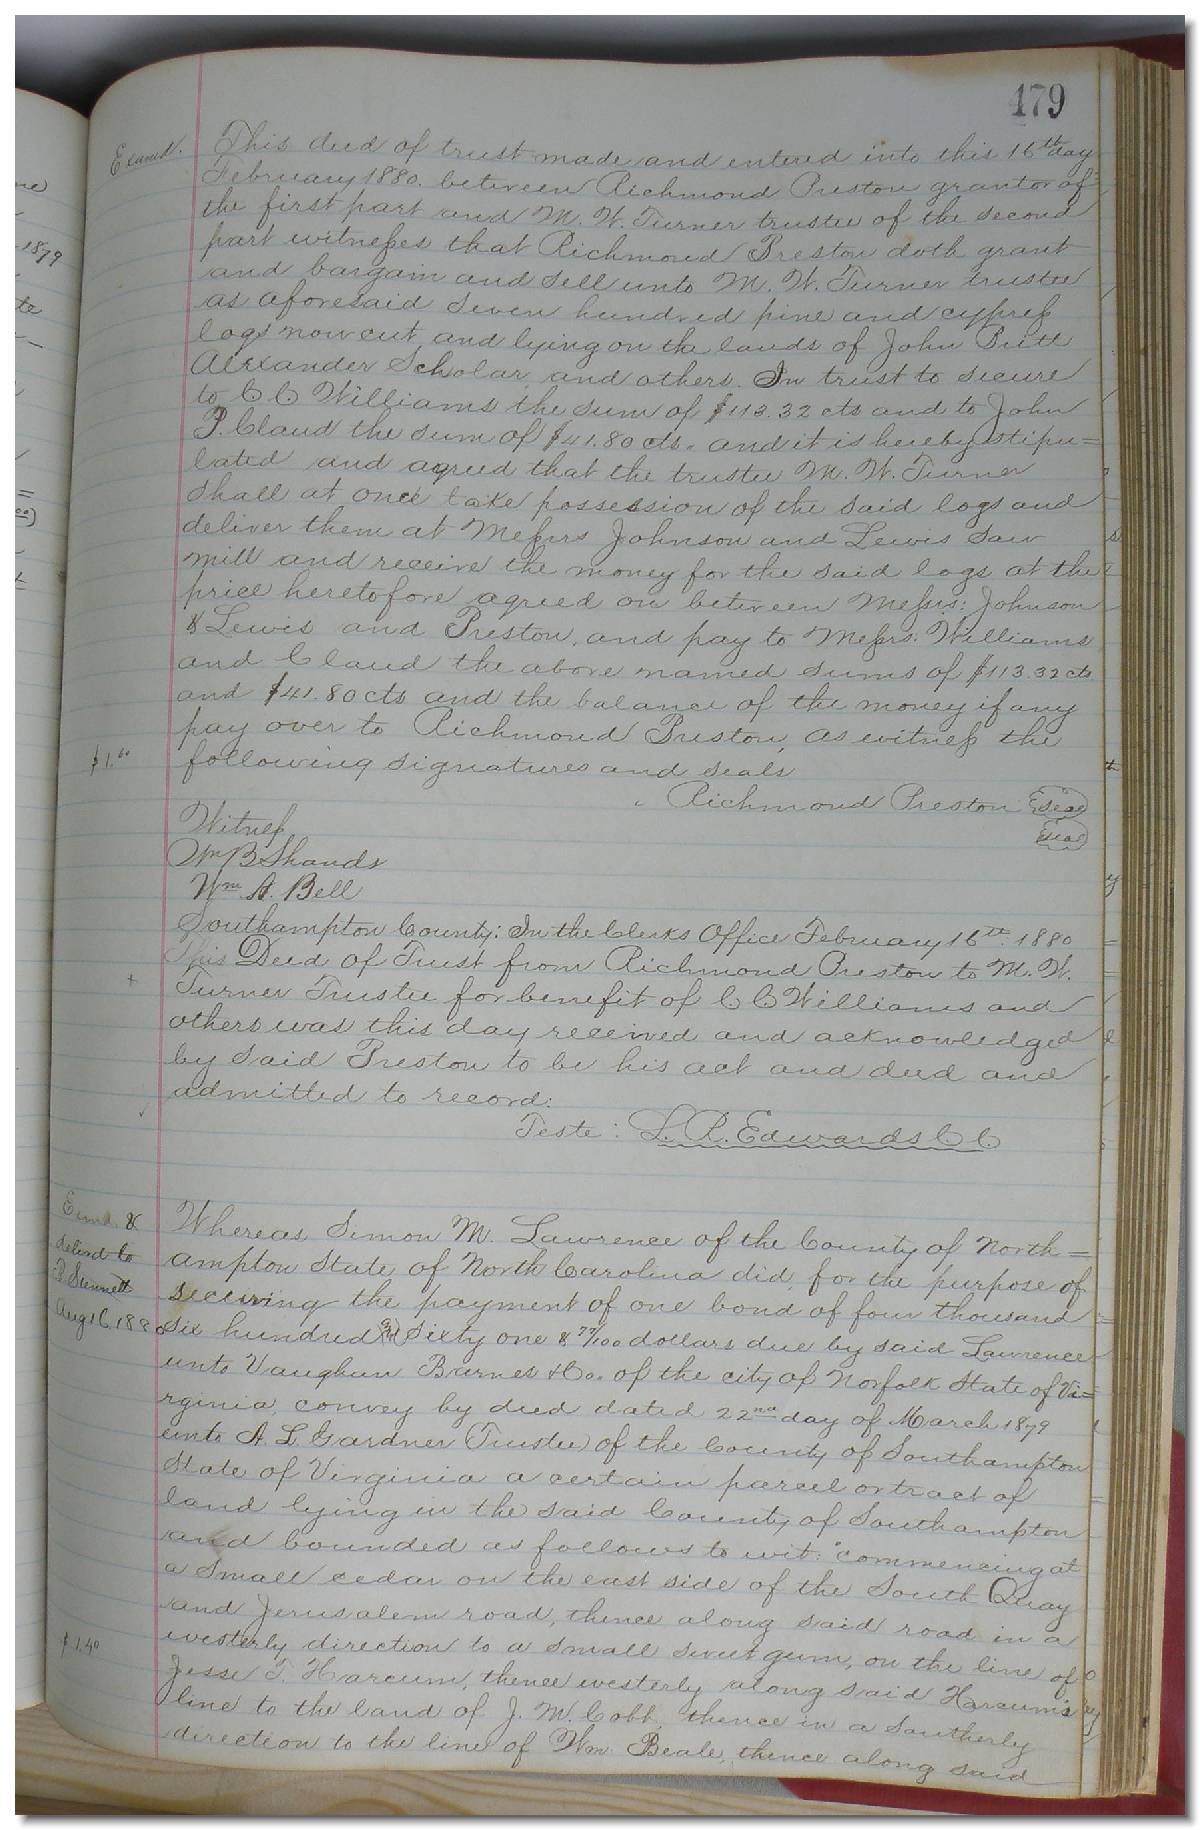 479
Examd.
This deed of trust made and entered into this 16th day
February 1880. between Richmond Preston grantor of
the first part and M. W. Turner trustee of the second
part witnesses that Richmond Preston doth grant
and bargain and sell unto M. W. Turner trustee
as aforesaid seven hundred pine and cypress
logs now cut and lying on the lands of John Britt
Alexander Scholar and others. In trust to secure
to C C Williams the sum of $113.32 cts and to John
P. Claud the sum of $41.80 cts. and it is hereby stipu=
lated and agreed that the trustee M. W. Turner
shall at once take possession of the said logs and
deliver them at Messrs Johnson and Lewis Saw
mill and receive the money for the said logs at the
price heretofore agreed on between Messrs: Johnson
& Lewis and Preston, and pay to Messrs: Williams
and Claud the above named sums of $113.32 cts
and $41.80 cts and the balance of the money if any
pay over to Richmond Preston, as witness the
$1.60
following signatures and seals
Richmond Preston Seal
Seal
Witness
Wm B Shands
Wm A. Bell
Southampton County: In the Clerks Office February 16th 1880
This Deed of Trust from Richmond Preston to M. W.
Turner Trustee for benefit of C C Williams and
others was this day received and acknowledged
by said Preston to be his act and deed and
admitted to record:
Teste: L. R. Edwards C C
Exmd. &
delivd to
Aug 16 1880
Whereas, Simon M. Lawrence of the County of North=
ampton State of North Carolina did, for the purpose of
securing the payment of one bond of four thousand
six hundred and sixty one & 77/100 dollars due by said Lawrence
unto Vaughan Barnes & Co. of the city of Norfolk State of Vi=
rginia, convey by deed dated 22nd day of March 1879
unto A. L. Gardner (Trustee) of the County of Southampton
State of Virginia a certain parcel or tract of
land lying in the said County of Southampton
and bounded as follows to wit: "commencing at
a small cedar on the east side of the South Quay
and Jerusalem road, thence along said road in a
$1.40
westerly direction to a small sweet gum, on the line of
Jesse T. Harcum, thence westerly along said Harcum's
line to the land of J. M. Cobb, thence in a Southerly
direction to the line of Wm. Beale, thence along said